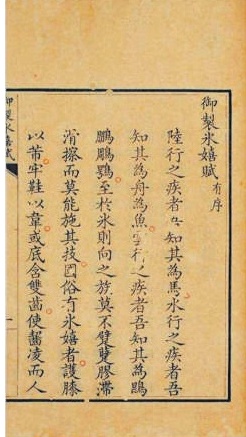 御製冰嬉賦 有序
陸行之疾者吾知其為馬水行之疾者吾
知其為舟為魚雲行之疾者吾知其為鵾
鵬鵰鶚至於冰則向之族莫不躄躠膠滯
滑擦而莫能施其技國俗有冰嬉者護膝
以芾牢鞋以韋或底含雙齒使齧凌而人
御製冰嬉賦
一